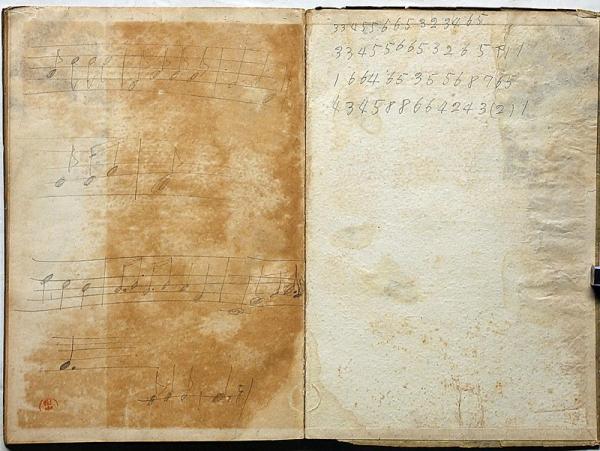 33455665323465
334556653265711
16646535568765
434588664243(2)1